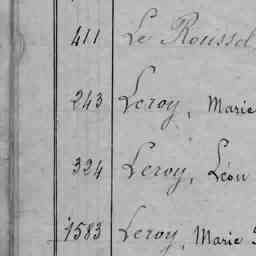 411 Le Roussel
243 Leroy, Marie
324 Leroy, Léon
1583 Leroy, Marie